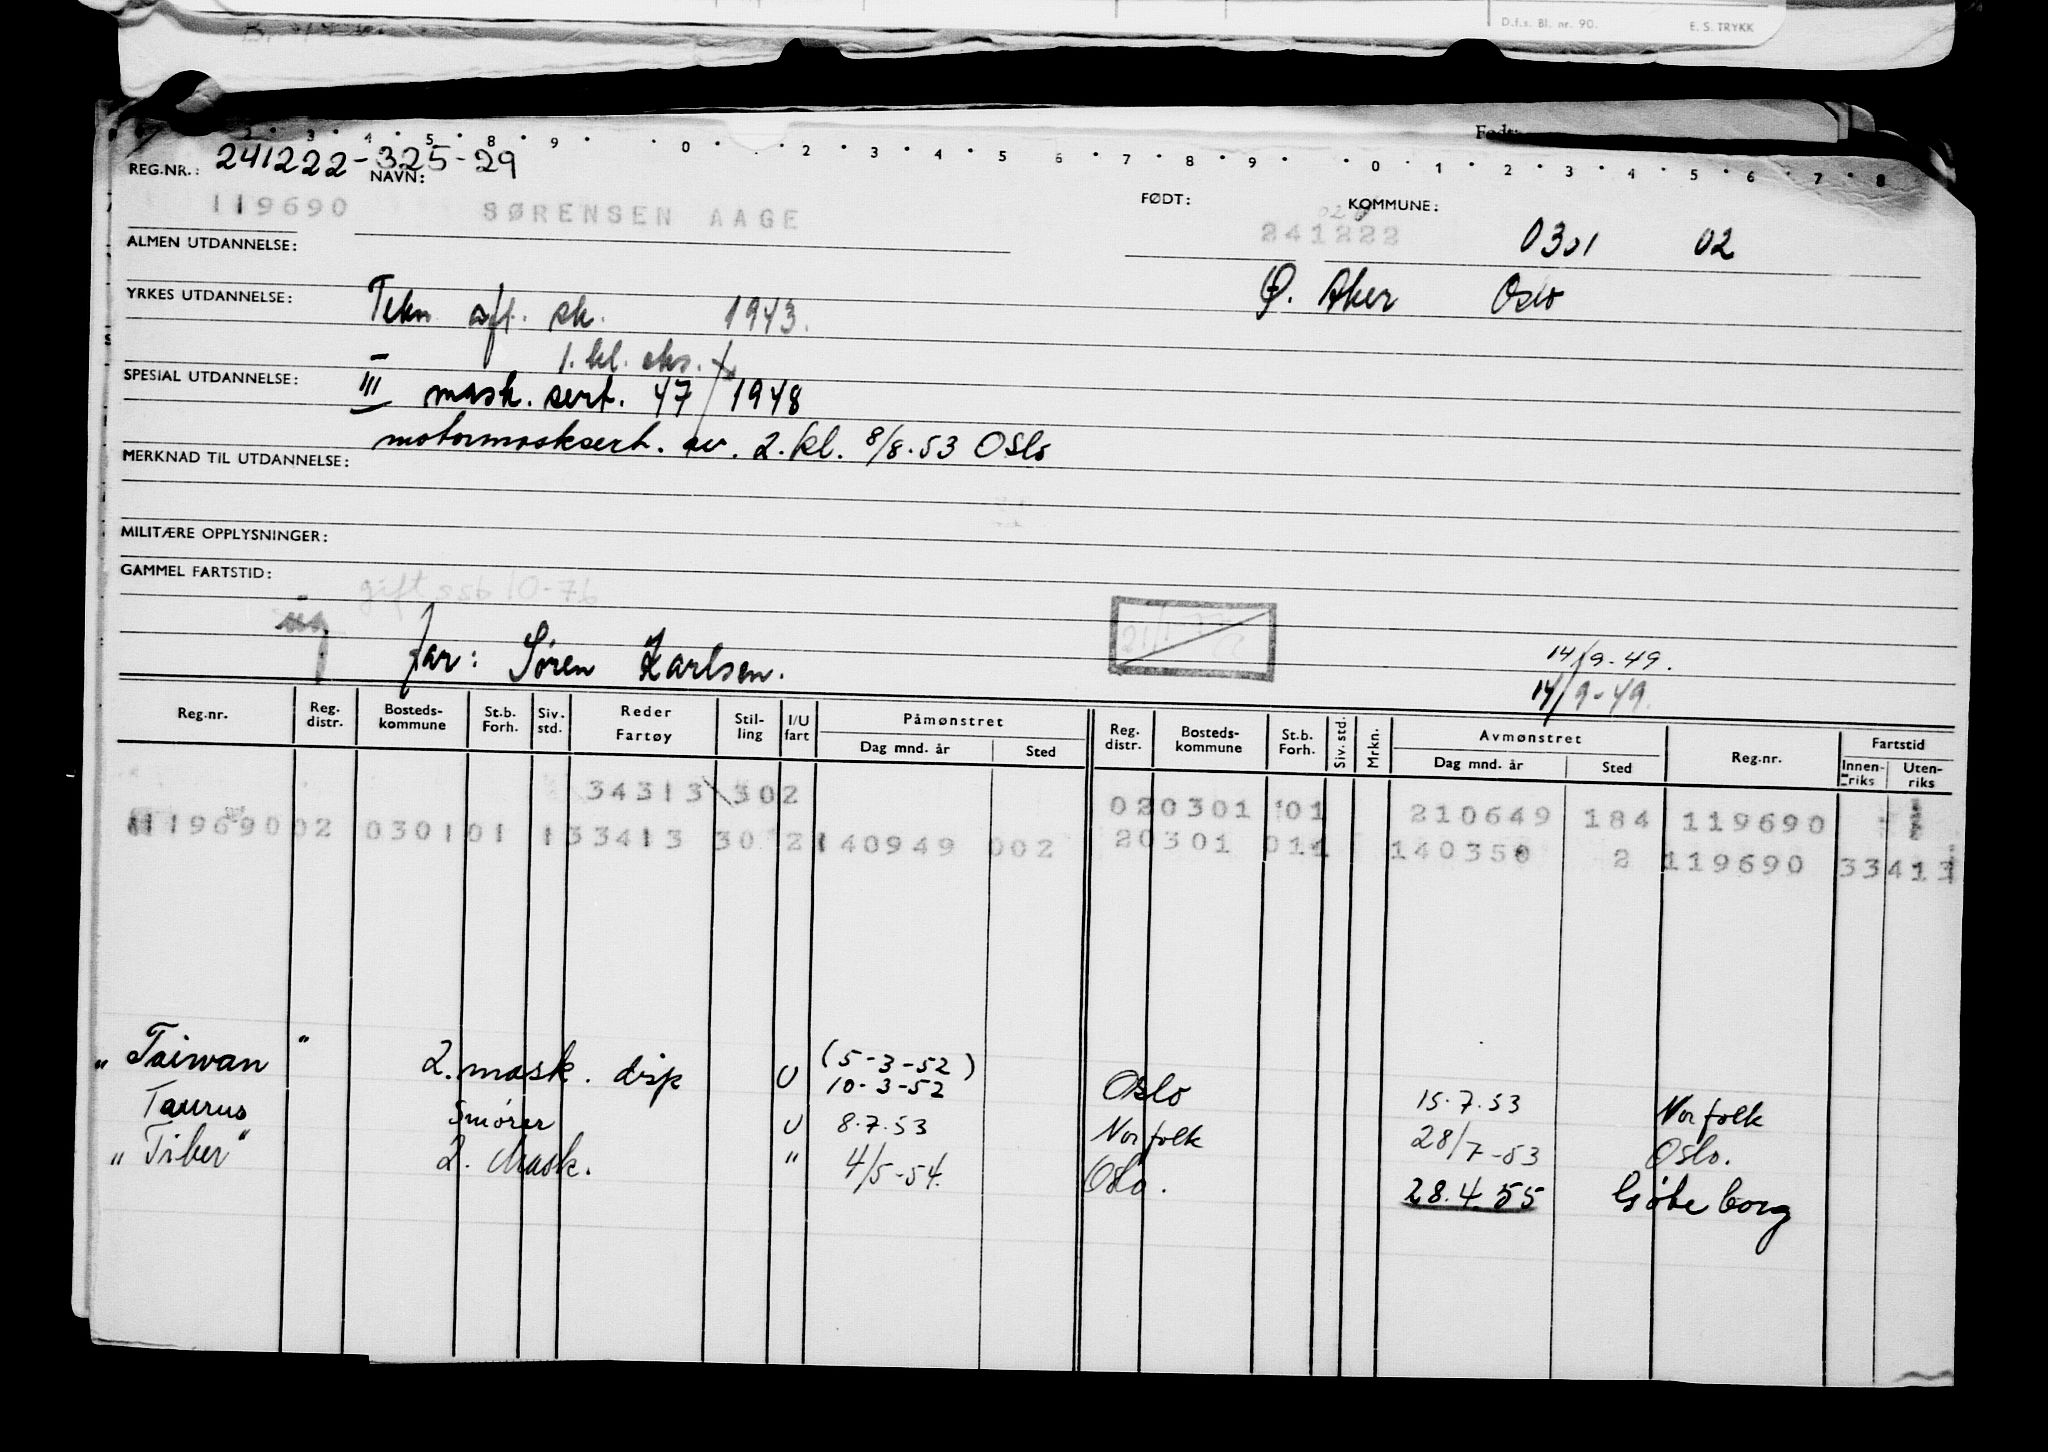 D.f.s. Bl. nr. 90. E. S. TRYKK
Født:
2 · 3 · 4 · 5 · 8 · 9 · 0 · 2 · 3 · 4 · 5 6 · 7 · 8 · 9 · · 0 · 1 · 2 · 3 · 4 · 5 · 6 · 7 · 8
REG.NR.: 241222-325-29
NAVN:
FØDT: KOMMUNE:
119690 SØRENSEN AAGE 241222 0301 02
ALMEN UTDANNELSE:
Ø. Aker Oslo
YRKES UTDANNELSE: Tekn aft. sk. 1943.
1. kl. eks.
SPESIAL UTDANNELSE: III mask. sert. 47/1948
motormasksert. av. 2. kl. 8/8.53 Oslo
MERKNAD TIL UTDANNELSE:
MILITÆRE OPPLYSNINGER:
GAMMEL FARTSTID:
gift ssb 10-76
ug far: Søren Karlsen.
14/9-49.
14/9-49.
Reg.nr. Reg. distr. Bosteds-kommune St.b. Forh. Siv. std. Reder Fartøy Stil-ling I/U fart Påmønstret Reg. distr. Bosteds-kommune St.b. Forh. Siv. std. Mrkn. Avmønstret Reg.nr. Fartstid
Dag mnd. år Sted Dag mnd. år Sted Innen-riks Uten-riks
34313 302 020301 01 210649 184 119690
119690 02 0301 01 1 33413 30 2 140949 002 20301 011 140350 2 119690 33413
„ Taiwan " 2. mask. disp U (5-3-52)
10-3-52 Oslo 15.7.53 Norfolk
Taurus Smører U 8.7.53 Norfolk 28/7-53 Oslo.
„ Tiber " 2. Mask. " 4/5-54. Oslo. 28.4.55 Gøteborg